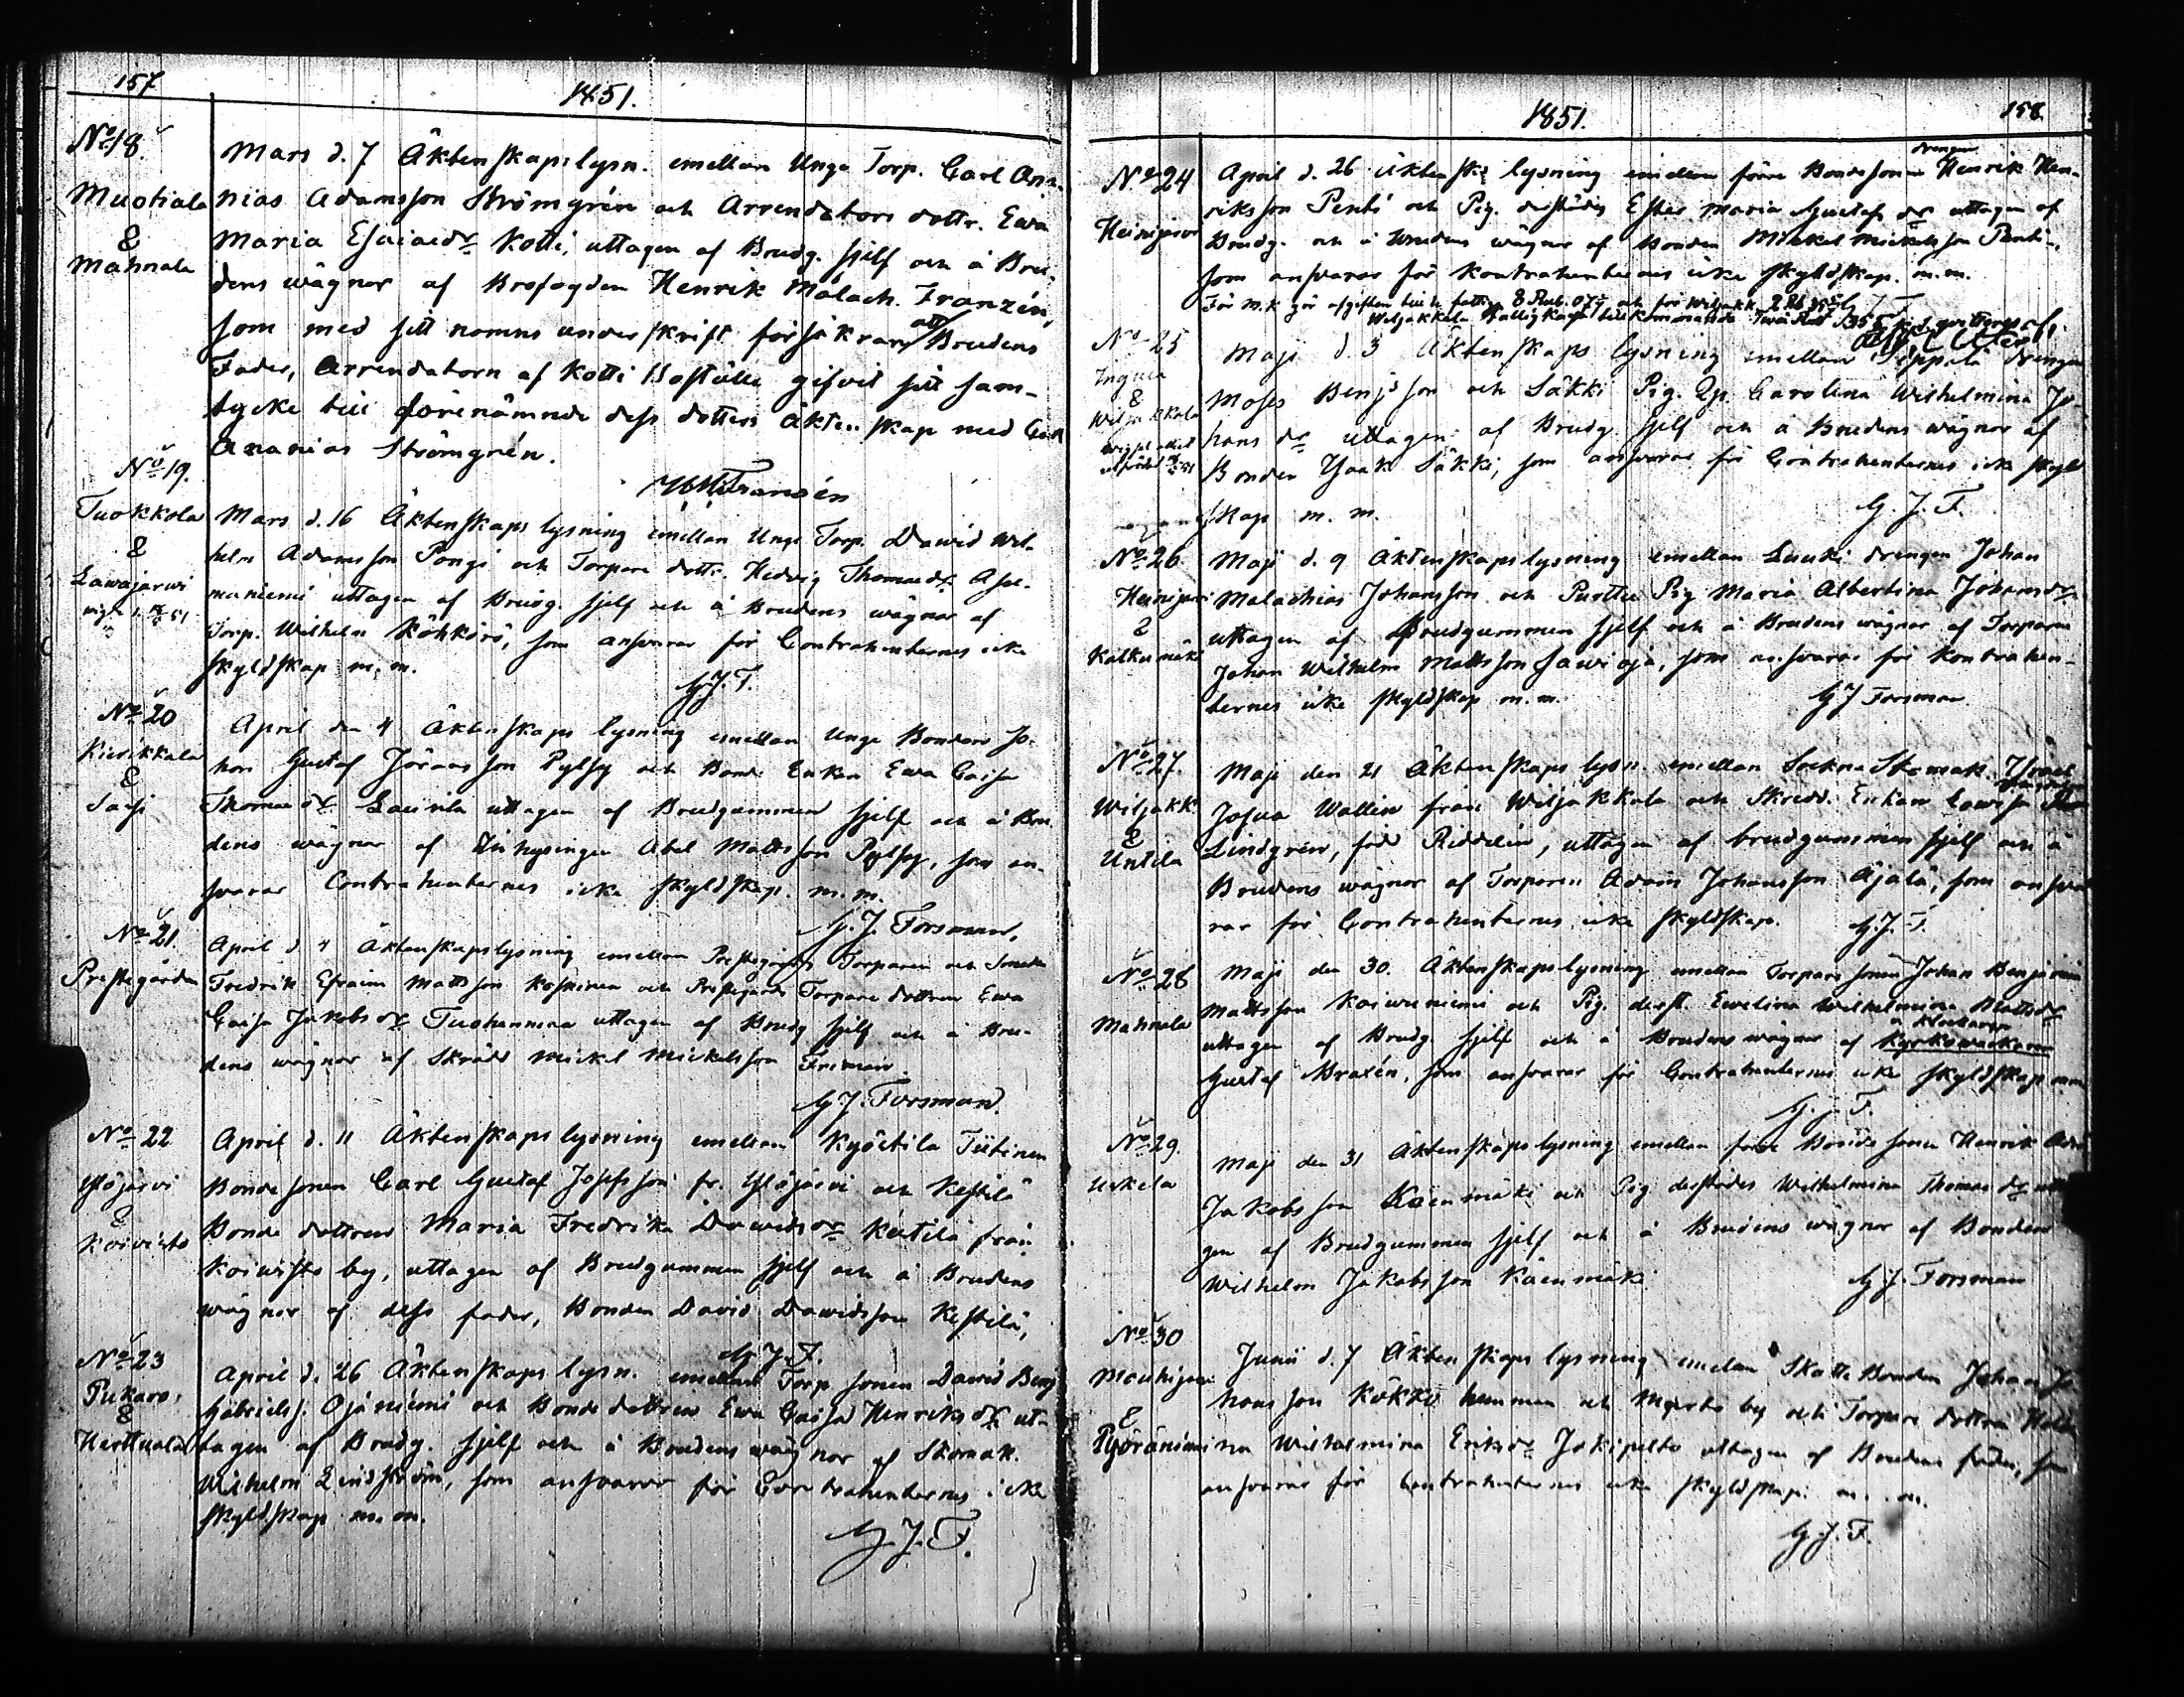 157
1851.
No 18.
Muotiala
&
Mahnala
Mars d. 7 Äktenskapslysn. emellan Unge Torp. Carl Ana-
nias Adamsson Strömgrén och Arrendators dottr. Ewa
Maria Esaiaedr Kotti, uttagen af Brudg. sjelf och å Bru-
dens wägnar af Brofogden Henrik Malach. Franzén,
som med sitt namns underskrift försäkrar att Brudens
Fader, Arrendatorn af Kotti Boställe gifvit sitt sam-
tycke till förenämnde dess dotters Äktenskap med Carl
Ananias Strömgrén.
Fransén
No 19.
Tuokkola
&
Lawajärwi
Mars d. 16 Äktenskaps lysning emellan Unge Torp. Dawid Wil-
helm Adamsson Pongi och Torpare dottr. Hedvig Thomaedr
maniemi uttagen af Brudg. sjelf och å Brudens wägnar af
Torp. Wilhelm Köhkörö, som answarar för Contrahenternes icke
skyldskap m. m.
G. J. F.
No 20
Kierikkala
&
Sarsi
April den 4 Äktenskaps lysning emellan Unge Bonden Jo-
han Gustaf Jöransson Pylsy och Bond Enkan Ewa Caisa
Thomaedr Laurila uttagen af Brudgummen sjelf och å Bru-
dens wägnar af Inhysingen Abel Mattsson Pylsy, som an-
swarar Contrahenternes icke skyldskap. m. m.
G. J. Forsman.
No 21
Prestegården
April d. 4 Äktenskapslysning emellan Prestegårds Torparen och Smeden
Fredrik Efraim Mattsson Koskinen och Prestegårds Torpare dottren Ewa
Caisa Jakobsdr Tuohenmaa uttagen af Brudg sjelf och å Bru-
dens wägnar af Skrädd Mickel Mickelsson Friman.
G. J. Forsman.
No 22
Ylöjärvi
&
Koivisto
April d. 11 Äktenskaps lysning emellan Kyöstilä Tiitinen
Bondesonen Carl Gustaf Josefsson fr. Ylöjärvi och Kestilä
Bonde dottren Maria Fredrika Dawidsdr Kestilä från
Koiwisto by, uttagen af Brudgummen sjelf och å Brudens
wägnar af dess fader, Bonden David Dawidsson Kestilä,
G. J. F.
No 23
&
Herttuala
April d. 26 Äktenskaps lysn. emellan Torp sonen Dawid Benj
Gabriels. Ojaniemi och Bonde dottren Ewa Caisa Henriksdr ut-
tagen af Brudg. sjelf och å Brudens wägnar af Skomak.
Wilhelm Lindström, som answarar för Contrahenternes icke
skyldskap m. m.
G. J. F.
1851.
158
No 24
Heinijärvi
drengen
April d. 26 äktensk: lysning emellan förre Bondesonen Henrik Hen-
riksson Pentti och Pig. derstädes Ester Maria Gustafsdr uttagen af
Brudg. och å Brudens wägnar af Bonden Mickel Mickelsson Pentti,
som answarar för Kontrahenternes icke skyldskap. m. m.
No 25
&
Wiljakkala
Maji d. 3 Äktenskaps lysning emellan Seppälä drengen
Moses Benj:sson och Säkki Pig. Carolina Wilhelmina Jo-
hansdr uttagen af Brudg sjelf och å Brudens wägnar af
Bonden Isaak Säkki, som answarar för Contrahenternes icke skyld
skap m. m.
G. J. F.
No 26
Heinijärvi
&
Kalkunmäki
Maji d. 9 Äktenskapslysning emellan Luuki drengen Johan
Malachias Johansson och Puottu Pig Maria Albertina Johansdr
uttagen af Brudgummen sjelf och å Brudens wägnar af Torparen
Johan Wilhelm Mattsson Sawioja, som answarar för Kontrahen-
ternes icke skyldskap m. m.
G J Forsman
No 27.
Wiljakk
&
Untila
Maji den 21 Äktenskaps lysn. emellan Sockne Skomak. Israel
Josua Wallin från Wiljakkala och Skredd. Enkan Lowisa
Lindgrén, född Riddelin, uttagen af brudgummen sjelf och å
Brudens wägnar af Torparen Adam Johansson Äjälä, som answa
rar för Contrahenternes icke skyldskap.
G. J. F.
No 28
Mahnala
Maji den 30. Äktenskapslysning emellan Torpare sonen Johan Benjamin
Mattsson Koiwuniemi och Pig. derst. Ewelina Wilhelmina Mattsdr
uttagen af Brudg sjelf och å Brudens wägnar af Kyrkowäktaren
Gustaf Braxén, som answarar för Contrahenternes icke skyldskap mm
G. J. F.
No 29.
Uskela
Maji den 31 Äktenskapslysning emellan förre Bonde sonen Henrik
Jakobsson Kaenmäki och Pig derstädes Wilhelmina Thomasdr utta
gen af Brudgummen sjelf och å Brudens wägnar af Bonden
Wilhelm Jakobsson Kaenmäki
G J. Forsman
No 30
&
Pyöräniemi
Junii d. 7 Äktenskaps lysning emellan Skatte Bonden Johan Jo
hansson Kokko hemman och by och Torpare dottren
na Wilhelmina Eriksdr Jokipelto uttagen af Brudens fader, som
answarar för Contrahenternes icke skyldskap. m. m.
G. J. F.